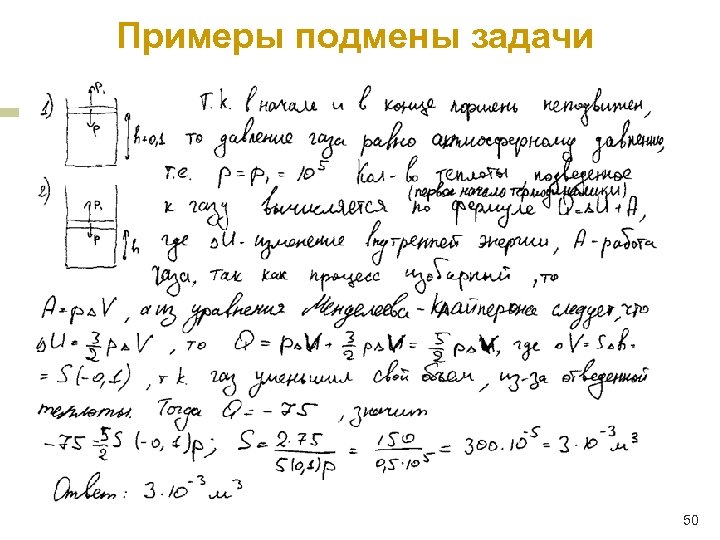 Примеры подмены задачи
1) P₁ Т.к. в начале и в конце поршень неподвижен,
P h=0,1 то давление газа равно атмосферному давлению,
т.е. p = p₁ = 10⁵ Кол-во теплоты, подведенное
(первое начало термодинамики)
2) P₁ к газу вычисляется по формуле Q=ΔU+A,
P h где ΔU - изменение внутренней энергии, A - работа
газа, так как процесс изобарный, то
A=pΔV, а из уравнения Менделеева-Клайперона следует, что
ΔU=3/2 pΔV, то Q = pΔV + 3/2 pΔV = 5/2 pΔV, где ΔV=SΔh=
= S(-0,1), т.к. газ уменьшил свой объем, из-за отведенной
теплоты. Тогда Q = -75, значит
-75 = 5/2 S (-0,1)p; S = 2·75/5(0,1)p = 150/0,5·10⁵ = 300·10⁻⁵ = 3·10⁻³ м³
Ответ: 3·10⁻³ м³
50